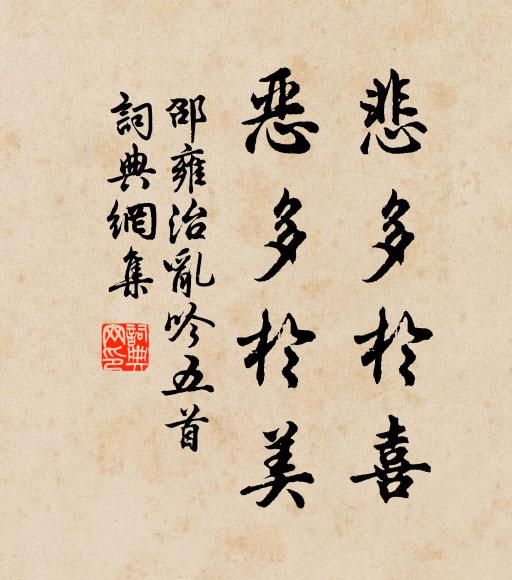 悲多於喜
惡多於美
邵雍治亂吟五首
詞典網集
詞典网印